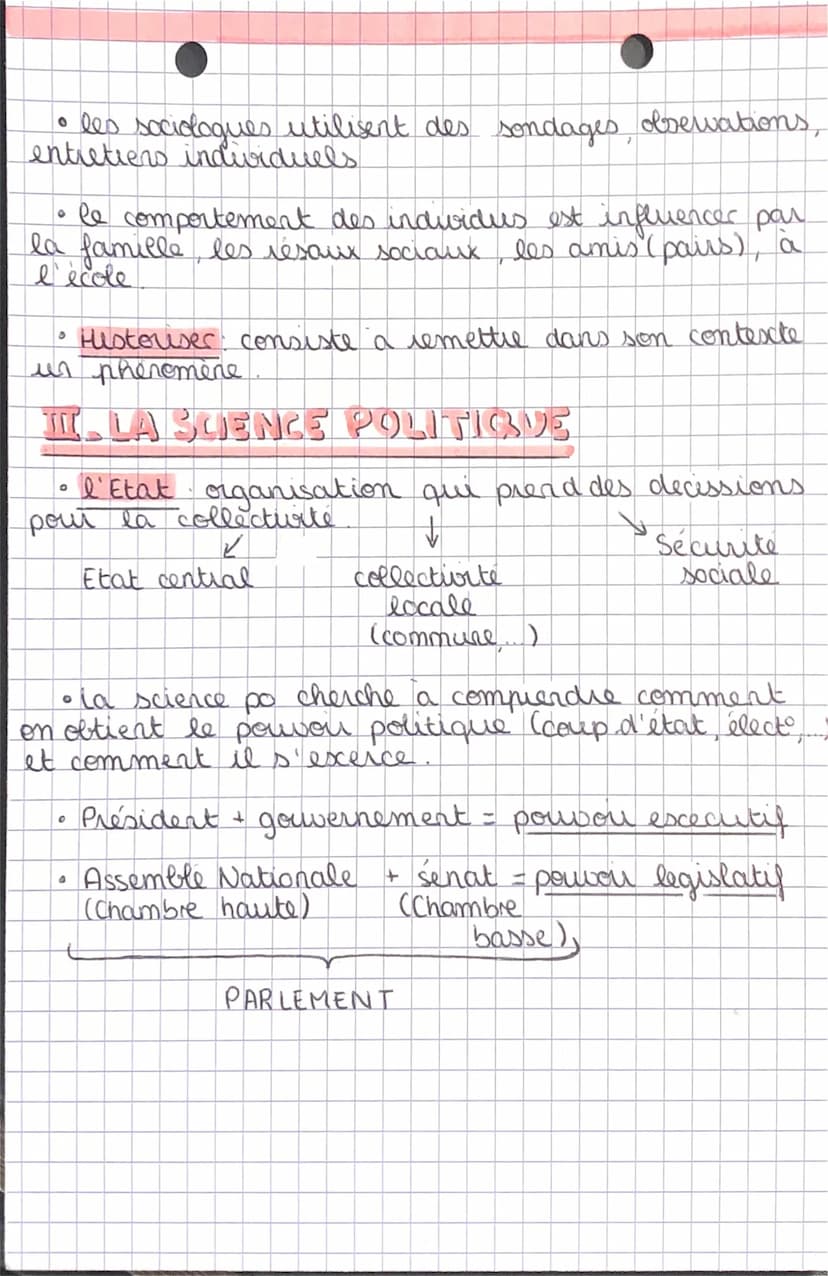 • les sociologues utilisent des sondages, observations,
entretiens individuels
• le comportement des individus est influencer par
la famille, les résaux sociaux, les amis (pairs), à
l'école.
• Historiser : consiste à remettre dans son contexte
un phénomène.
III. LA SCIENCE POLITIQUE
• l'Etat : organisation qui prend des decissions
pour la collectivité.
Etat central
collectivité
locale
(commune,...)
Sécurité
sociale
• la science po cherche à comprendre comment
on obtient le pouvoir politique (coup d'état, élect°,...)
et comment il s'exerce.
• Président + gouvernement = pouvoir excecutif
• Assemblé Nationale + sénat = pouvoir legislatif
(Chambre haute) (Chambre
basse)
PARLEMENT